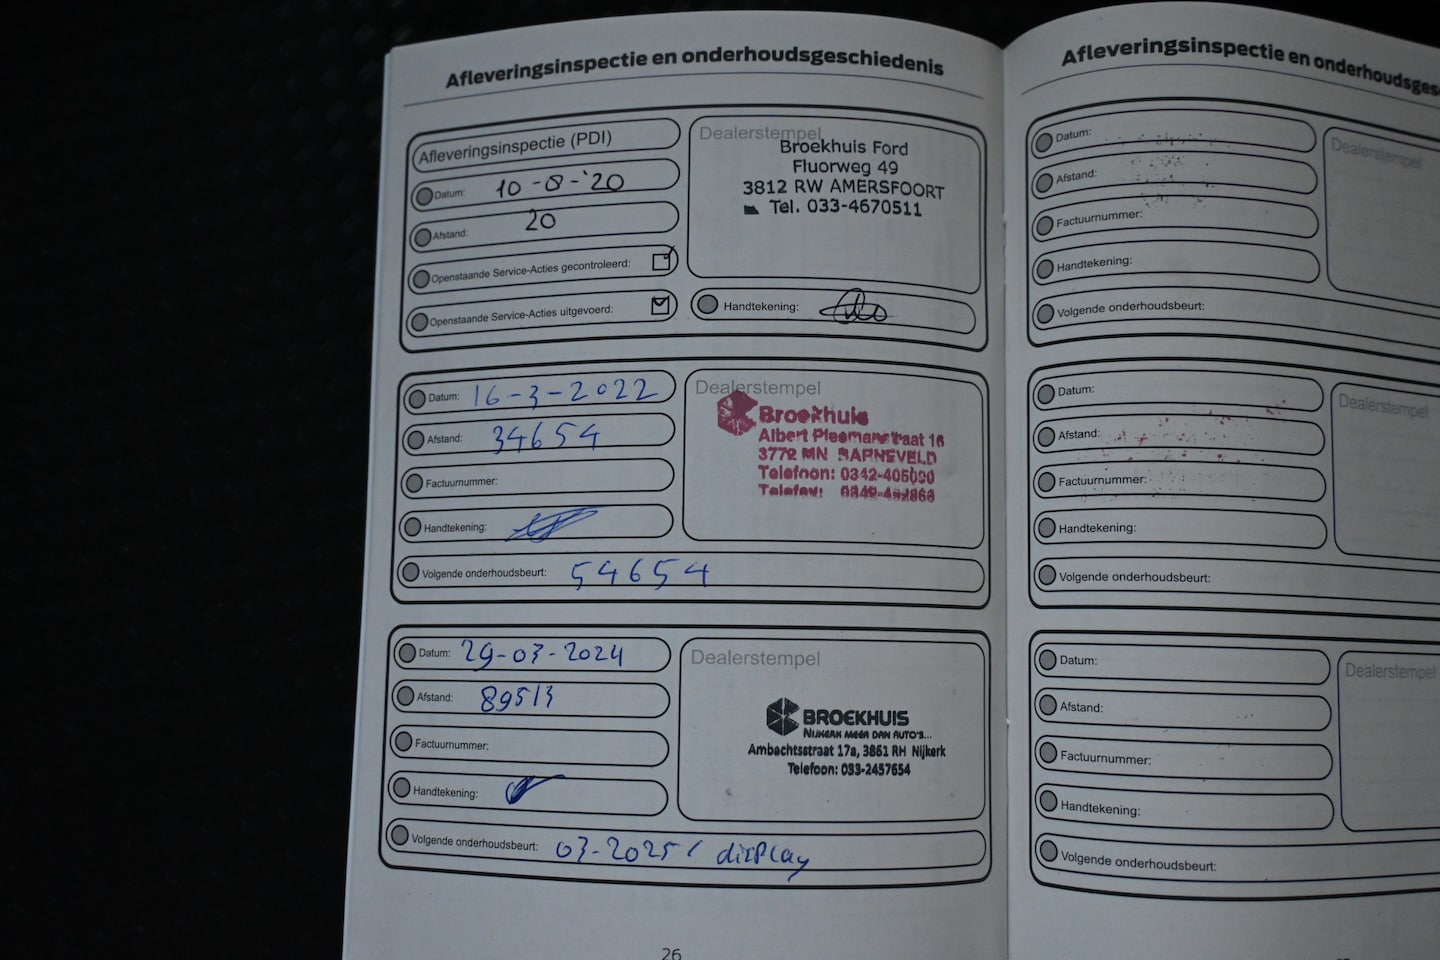 Afleveringsinspectie en onderhoudsgeschiedenis
Afleveringsinspectie (PDI)
Datum: 10-8-'20
Afstand: 20
Openstaande Service-Acties gecontroleerd:
Openstaande Service-Acties uitgevoerd:
Dealerstempel
Broekhuis Ford
Fluorweg 49
3812 RW AMERSFOORT
Tel. 033-4670511
Handtekening:
Datum: 16-3-2022
Afstand: 34654
Factuurnummer:
Handtekening:
Volgende onderhoudsbeurt: 54654
Dealerstempel
Broekhuis
Albert Plesmanstraat 16
3772 MN BARNEVELD
Telefoon: 0342-405090
Telefax:
Datum: 29-03-2024
Afstand: 89513
Factuurnummer:
Handtekening:
Volgende onderhoudsbeurt: 03-2025 / display
Dealerstempel
BROEKHUIS
NIJKERK MEER DAN AUTO'S...
Ambachtsstraat 17a, 3861 RH Nijkerk
Telefoon: 033-2457654
26
Afleveringsinspectie en onderhoudsges
Datum:
Afstand:
Factuurnummer:
Handtekening:
Volgende onderhoudsbeurt:
Dealerstempel
Datum:
Afstand:
Factuurnummer:
Handtekening:
Volgende onderhoudsbeurt:
Dealerstempel
Datum:
Afstand:
Factuurnummer:
Handtekening:
Volgende onderhoudsbeurt:
Dealerstempel